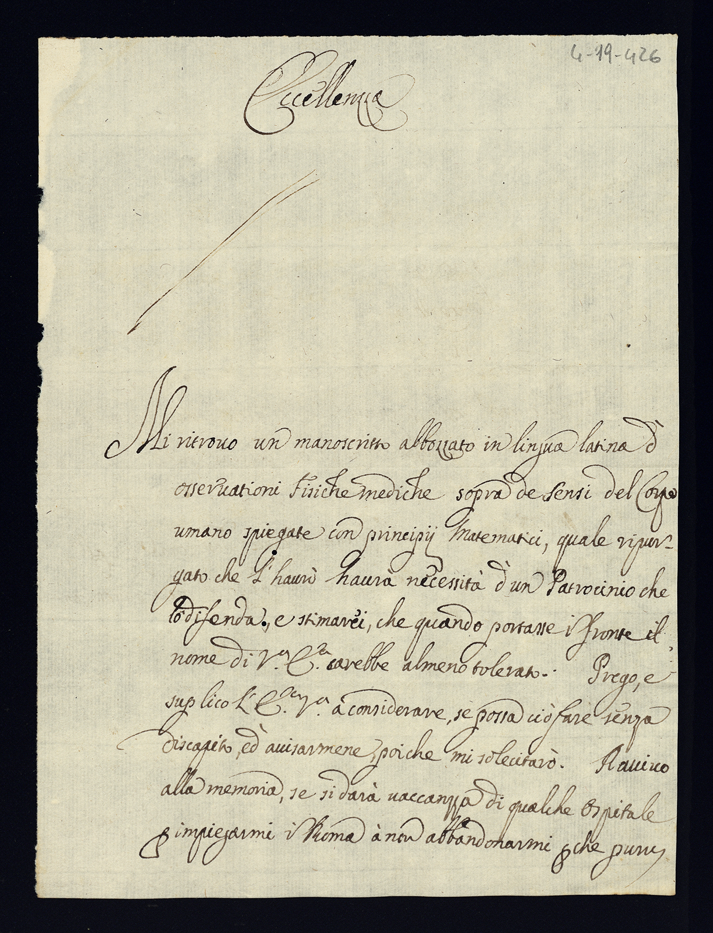 4-19-426
Eccellenza
Mi ritrovo un manoscritto abbozzato in lingua latina d'
osservationi Fisiche mediche sopra de sensi del Corpo
umano spiegate con principij Matematici, quale ripur-
gato che l'haurò haurà necessità d'un Patrocinio che
lo difenda, e stimarei, che quando portasse i fronte il
nome di V.ra E.za sarebbe almeno tolerato. Prego, e
suplico l'E.za V.ra à considerare, se possa ciò fare senza
discapito, ed avisarmene, poiche mi solecitarò. Ravivo
alla memoria, se si darà vaccanza di qualche Ospitale
p impiegarmi i Roma à non abbandonarmi p che